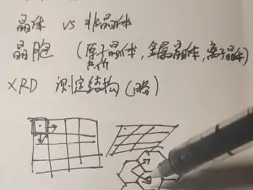 晶体 vs 非晶体
晶胞 (原子晶体, 金属晶体, 离子晶体)
共价
XRD 测定结构 (略)